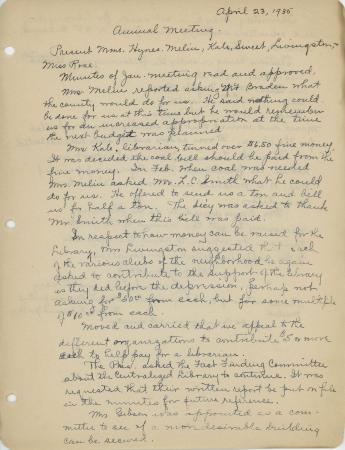 April 23, 1935
Annual Meeting.
Present Mmes. Hynes, Melin, Kale, Sweet, Livingston,
Miss Rose.
Minutes of Jan. meeting read and approved.
Mrs. Melin reported asking Mr. Braden what
the county would do for us. He said nothing could
be done for us at this time but he would remember
us for an increased appropriation at the time
the next budget was planned
Mrs. Kale, librarian, turned over $6.50 fine money.
It was decided the coal bill should be paid from the
fine money. In Feb. when coal was needed
Mrs. Melin asked Mr. L.C. Smith what he could
do for us. He offered to send us a ton and bill
us for half a ton. The Secy was asked to thank
Mr. Smith when this bill was paid.
In respect to how money can be raised for the
Library, Mrs Livingston suggested that each
of the various clubs of the neighborhood be again
asked to contribute to the support of the library
as they did before the depression, perhaps not
asking for $50.00 from each, but for some multiple
of $10.00 from each.
Moved and carried that we appeal to the
different organizations to contribute $5 or more
each to help pay for a librarian.
The Pres. asked the Fact Finding Committee
about the Centralized Library to continue. It was
requested that their written report be put on file
in the minutes for future reference.
Mrs. Gibson was appointed as a com-
mittee to see if a more desirable building
can be secured.